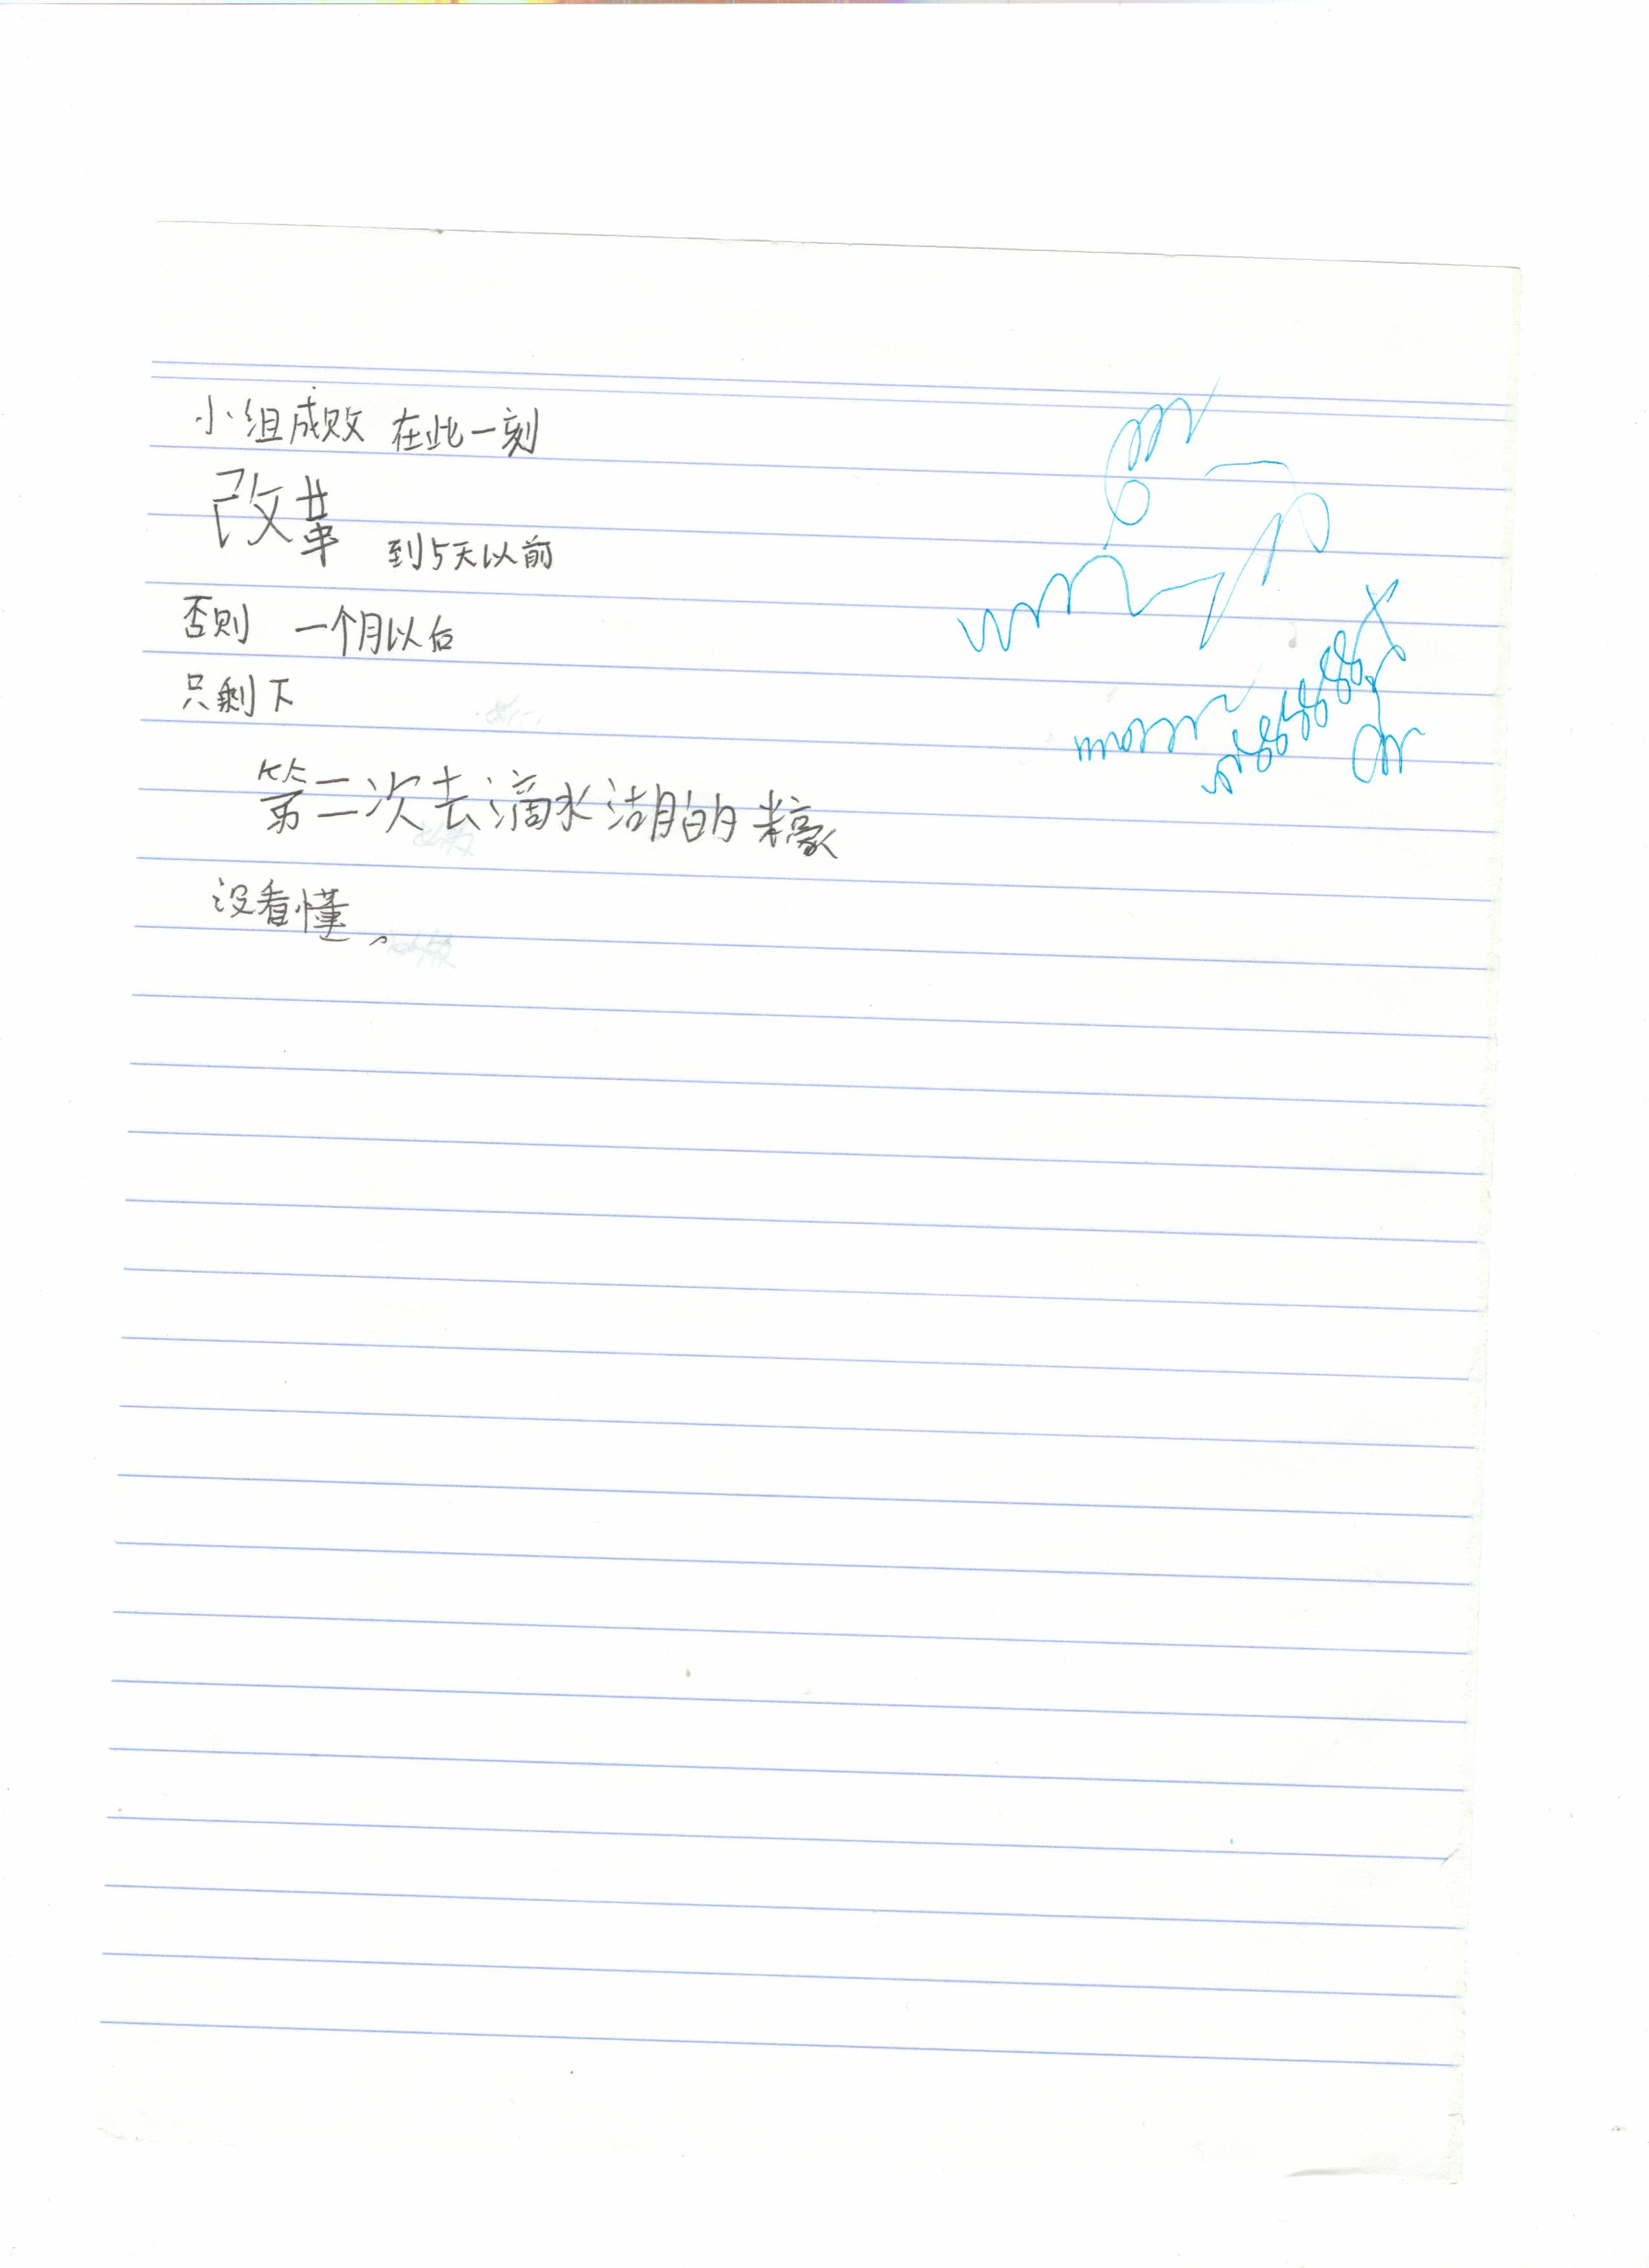 小组成败 在此一刻
改革 到5天以前
否则 一个月以后
只剩下
第二次去滴水湖的
没看懂。